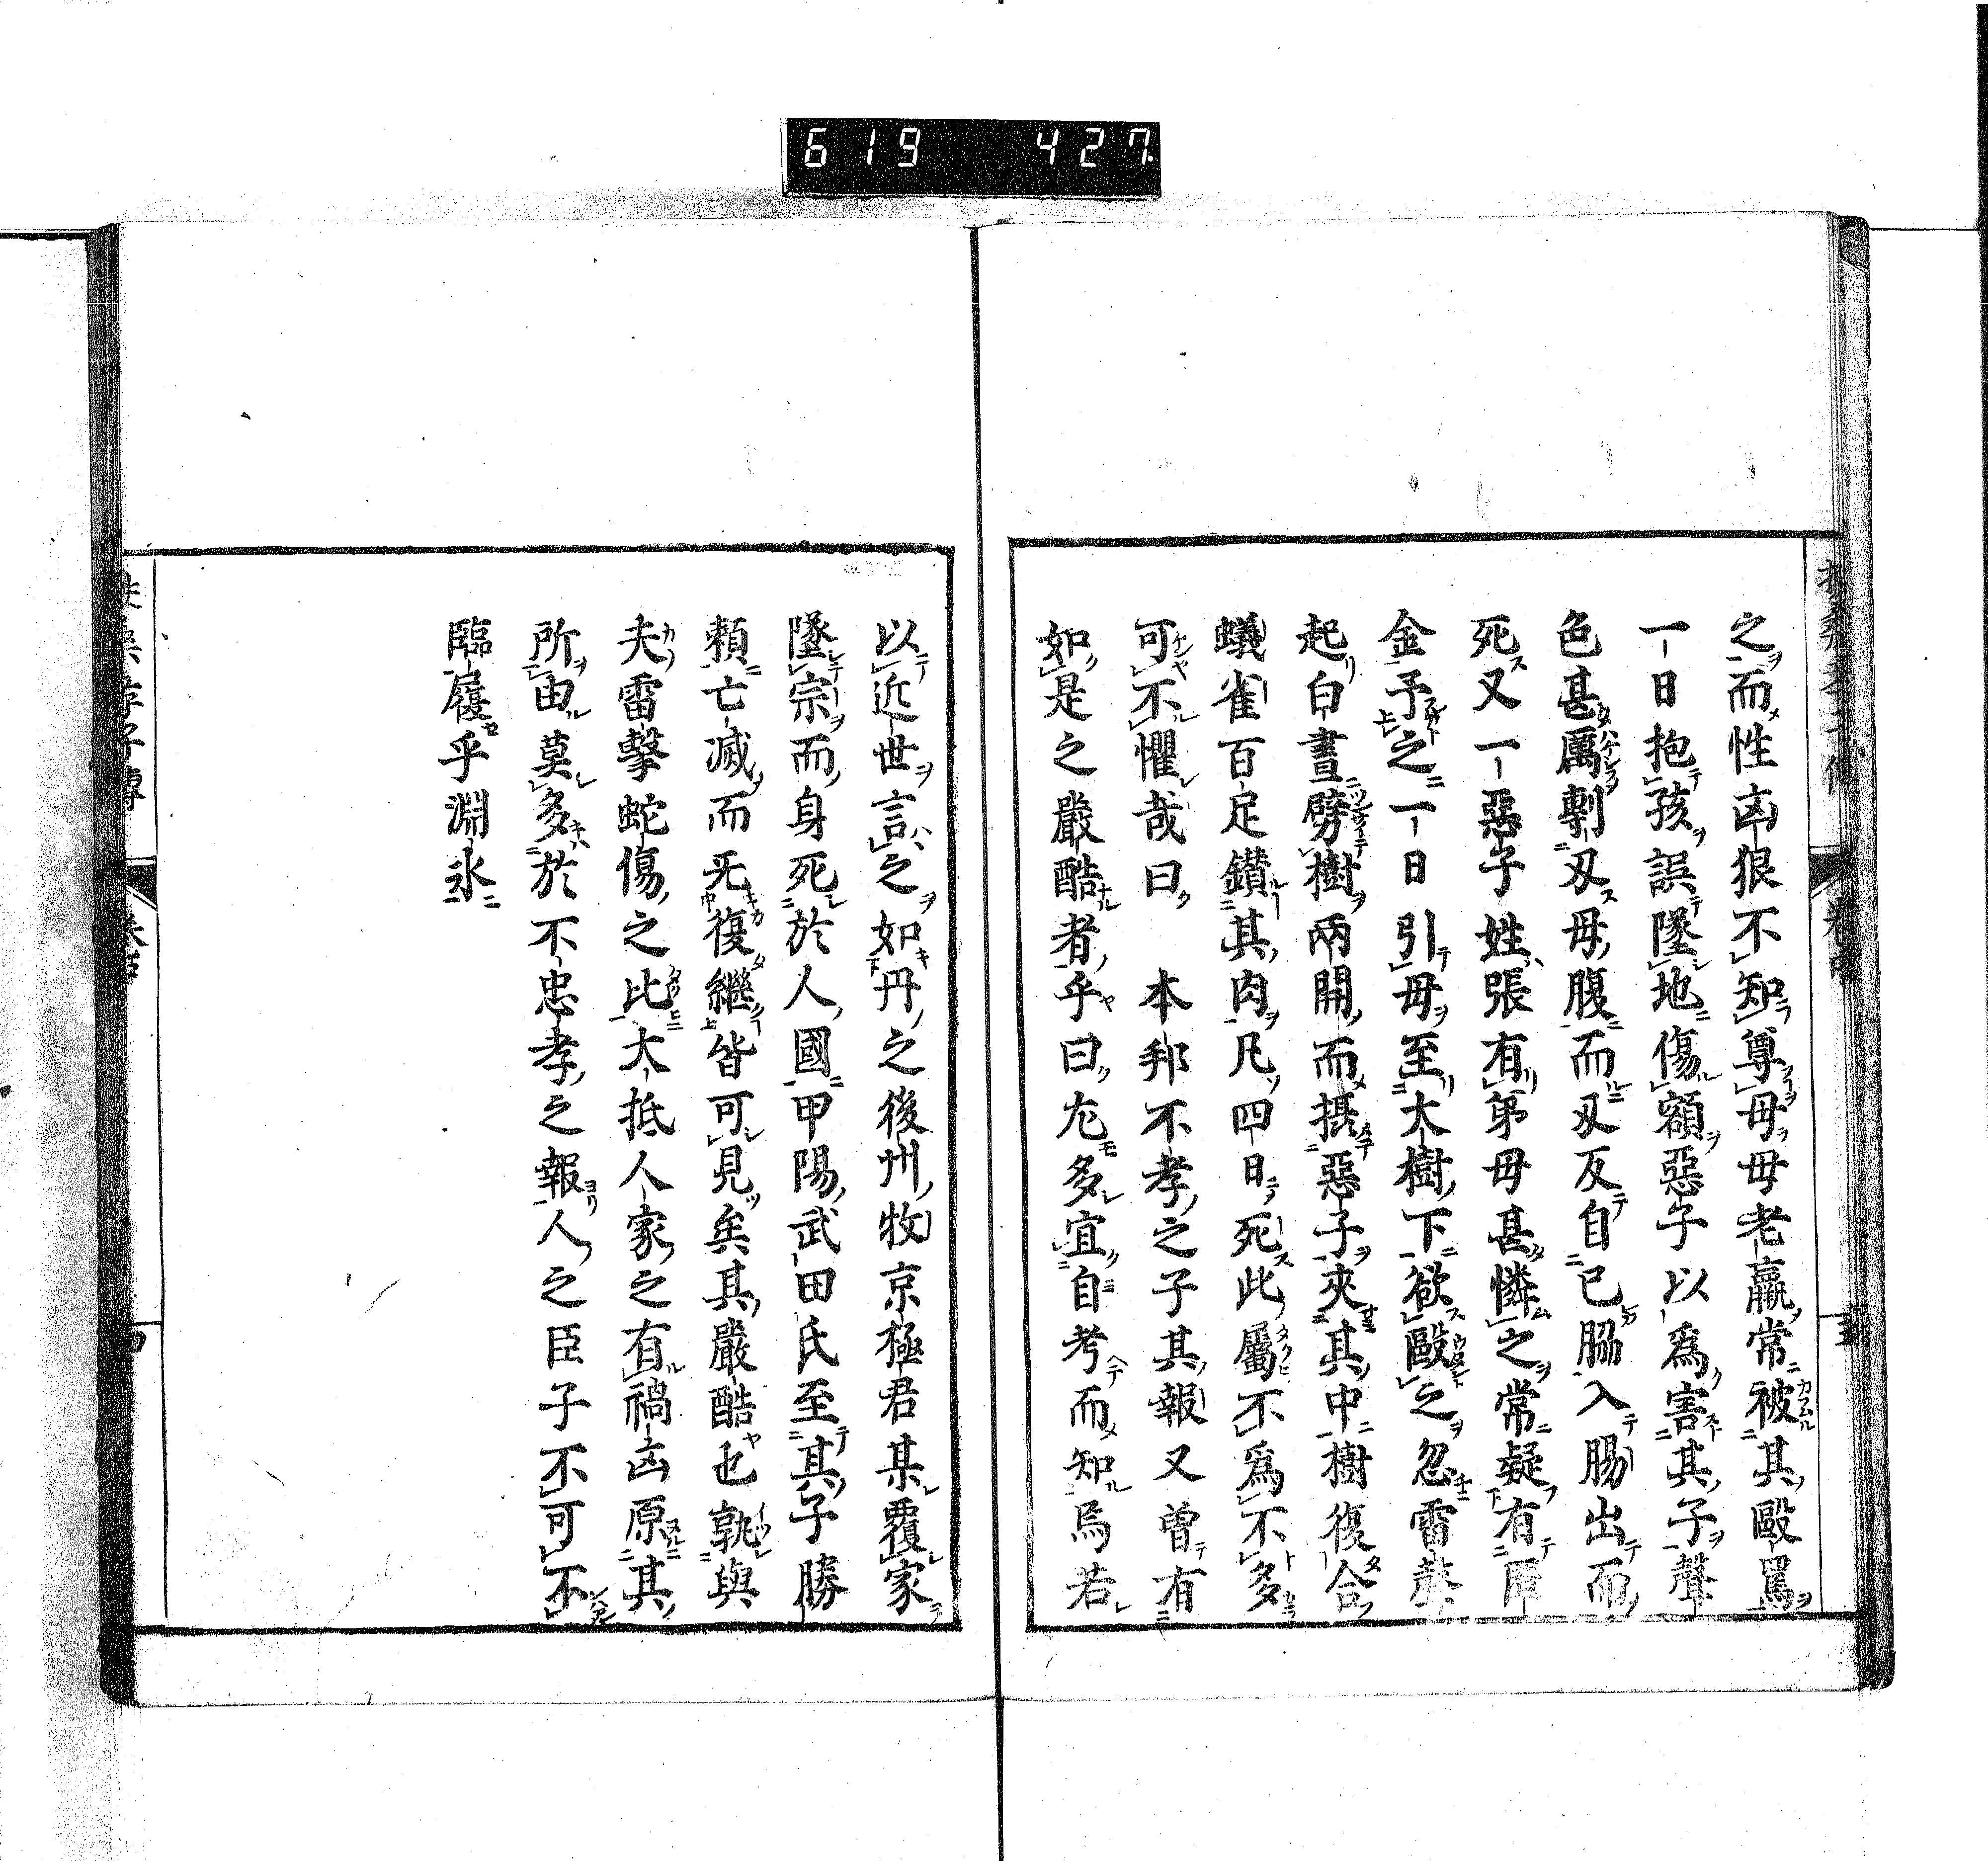 619 427
之而性凶狠不知尊母母老羸常被其毆罵
一日抱孩誤墜地傷額惡子以爲害其子聲
色甚厲剸刄母腹而刄反自己脇入腸出而
死又一惡子姓張有弟母甚憐之常疑有匿
金予之一日引母至大樹下欲毆之忽雷聲
起白晝劈樹兩開而摂惡子夾其中樹復合
蟻雀百足鑚其肉凡四日死此屬不爲不多
可不懼哉曰 本邦不孝之子其報又曽有
如是之嚴酷者乎曰尤多宜自考而知焉若
以近世言之如丹之後州牧京極君某覆家
墜宗而身死於人國甲陽武田氏至其子勝
頼亡滅而旡復繼皆可見矣其嚴酷也孰與
夫雷擊蛇傷之比大抵人家之有禍凶原其
所由莫多於不忠孝之報人之臣子不可不
臨履乎淵氷